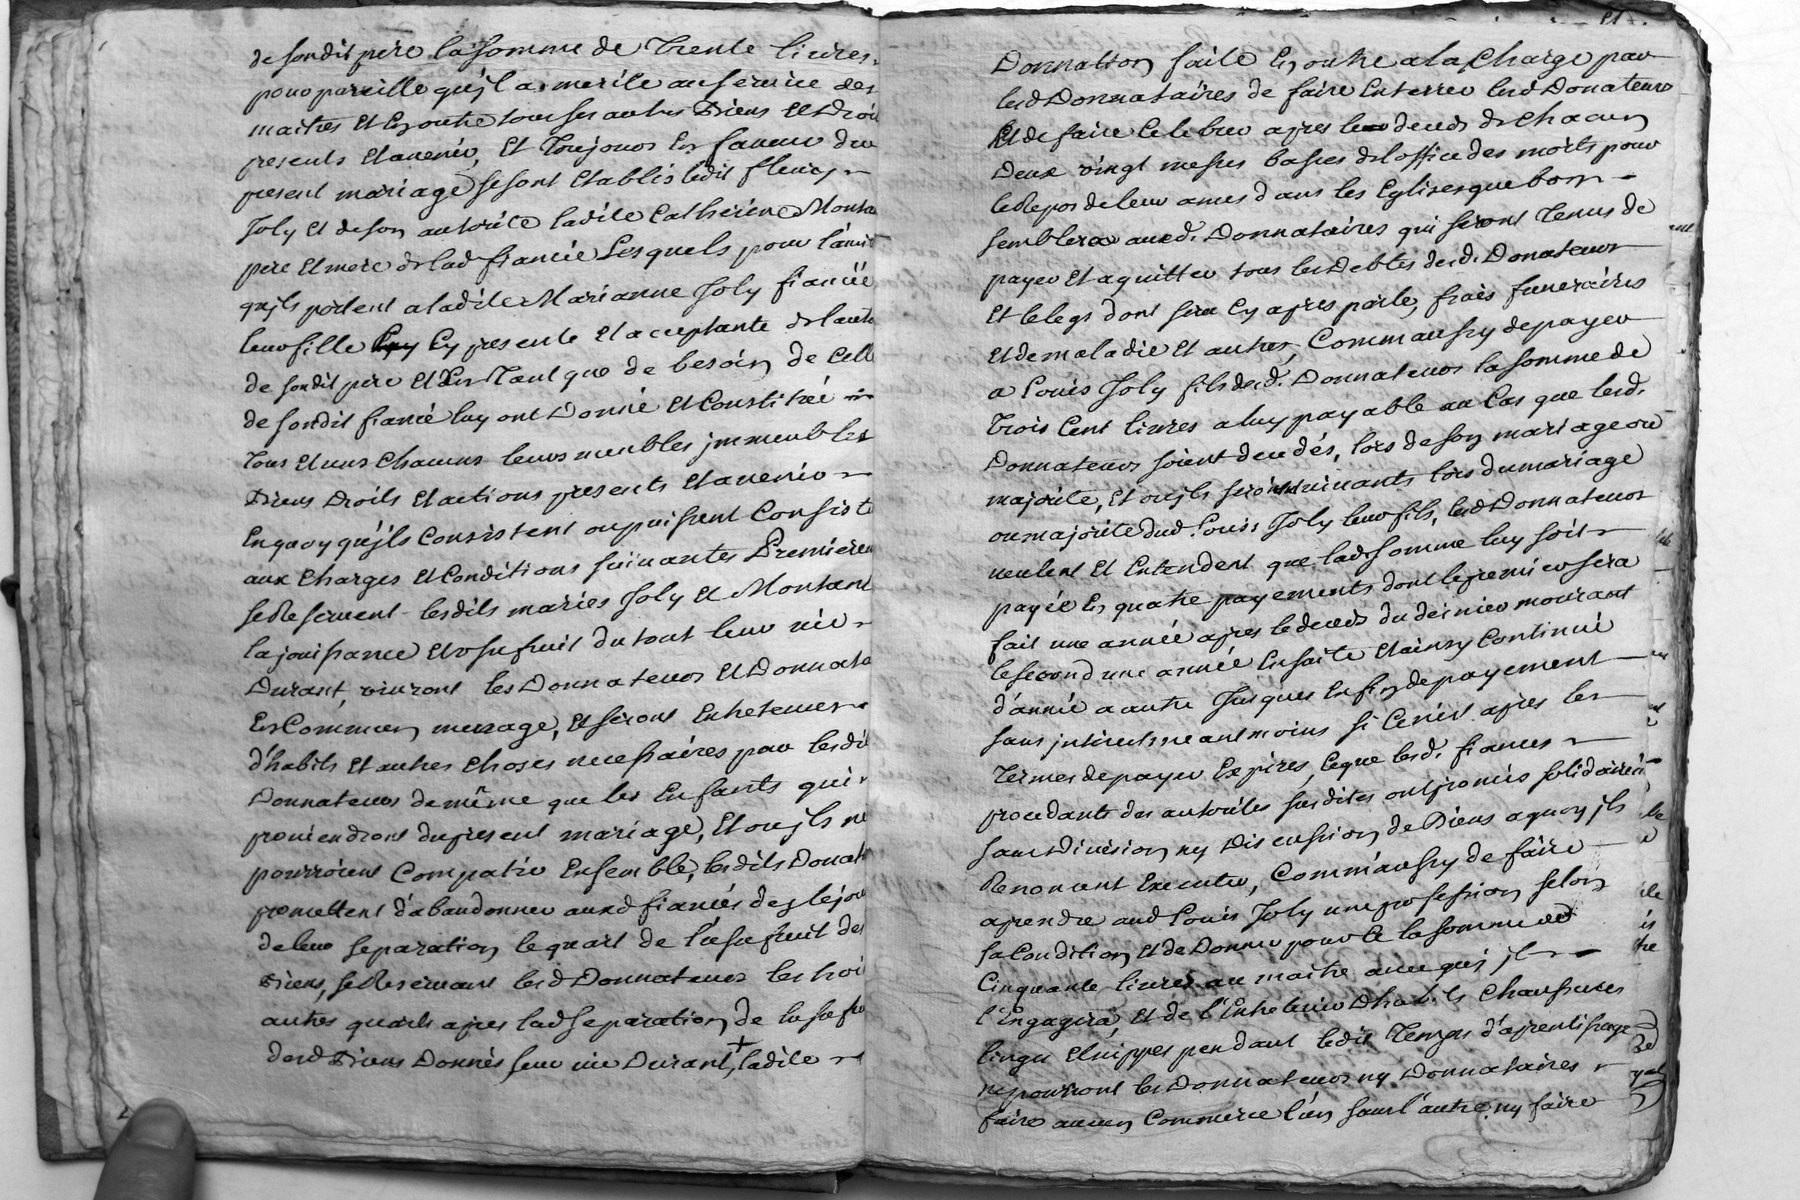 de sondit pere la somme de Trente livres
pour pareille qu'jl a merité au service des
maitres et en outre tous ses autres Biens et Droi
presents et avenir, Et Toujours En faveur du
present mariage se sont Etablis ledit fleury
Joly et de son autorité ladite Catherine Monta
pere et mere de lad fiancée Lesquels pour l'amit
qujls portent a ladite Marianne Joly fiancée
leur fille Cy presente et acceptante de l'auto
de sondit pere et En Tant que de besoin de Cell
de sondit fiancé luy ont Donné et Constitué
Tous et uns Chacuns leurs meubles jmmeubles
Biens Droits et actions presents et avenir
En quoy qu'jls Consistent ou puissent Consiste
aux Charges et Conditions suivantes Premierem
se Reservent lesdits mariés Joly et Montant
la jouissance et usufruit du tout leur vie
Durant, vivront les Donnateurs et Donnata
En Commun menage, et seront Entretenus
d'habits et autres Choses necessaires par lesdi
Donnateurs de même que les Enfants qui
proviendront du present mariage, Et ou jls ne
pourroient Compatir Ensemble, lesdits Donat
promettent d'abandonner auxd fiancés des le jou
de leur separation le quart de l'usufruit des
Biens, se Reservant lesd Donnateurs les troi
autres quarts apres lad separation de l'usufru
desd Biens Donnés leur vie Durant, + ladite
Donnation faite En outre a la Charge par
lesd Donnataires de faire Enterrer lesd Donateurs
Et de faire Celebrer apres le deceds de Chacun
Deux vingt messes basses de l'office des morts pour
le Repos de leur ames dans les Eglises que bon
semblera auxd. Donnataires qui seront Tenus de
payer et aquitter tous les Debtes desd. Donateurs
Et le legs dont sera Cy apres parlé, frais funeraires
et de maladie et autres, Comm'aussy de payer
a Louis Joly fils desd. Donnateurs la somme de
Trois Cent livres a luy payable au Cas que lesd.
Donnateurs soient decedés, lors de son mariage ou
majorité, Et ou jls seront vivants lors du mariage
ou majorité dud. Louis Joly leur fils, lesd Donnateurs
veulent et Entendent que lad somme luy soit
payée En quatre payements dont le premier sera
fait une année apres le deceds du dernier mourant
le second une année Ensuite et ainsy Continué
d'année a autre Jusques En fin de payement
sans jnterest neantmoins si Ce n'est apres les
Termes de payer Expirés, Ce que lesd. fiances
procedants des autorités susdites ont promis solidairem
sans Division ny Discussion de Biens a quoy jls
Renoncent Executer, Comm'aussy de faire
aprendre aud Louis Joly une profession selon
sa Condition et de Donner pour Ce la somme de
Cinquante livres au maitre avec qui jl
l'Engagera, Et de l'Entretenir D'habits Chaussures
linges et nippes pendant ledit Temps d'aprentissage
ne pourront les Donnateurs ny Donnataires
faire aucun Commerce l'un sans l'autre ny faire